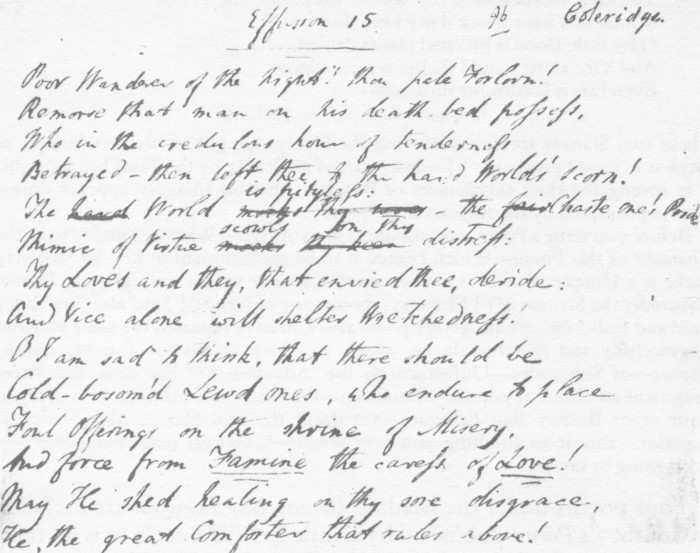 Effusion 15 Coleridge.
Poor Wanderer of the night! thou pale Forlorn!
Remorse that man on his death bed possess,
Who in the credulous hour of tenderness
Betrayed - then left thee to the hard World's scorn!
is pityless.
The hard World mocks thy woes - the fair Chaste one's Pride
scowls on thy
Mimic of Virtue mocks distress.
Thy Loves and they, that envied thee, deride!
And Vice alone will shelter Wretchedness.
O I am sad to think, that there should be
Cold-bosom'd Lewd ones, who endure to place
Foul Offerings on the shrine of Misery,
And force from Famine the caress of Love!
May He shed healing on thy sore disgrace,
He, the great Comforter that rules above!